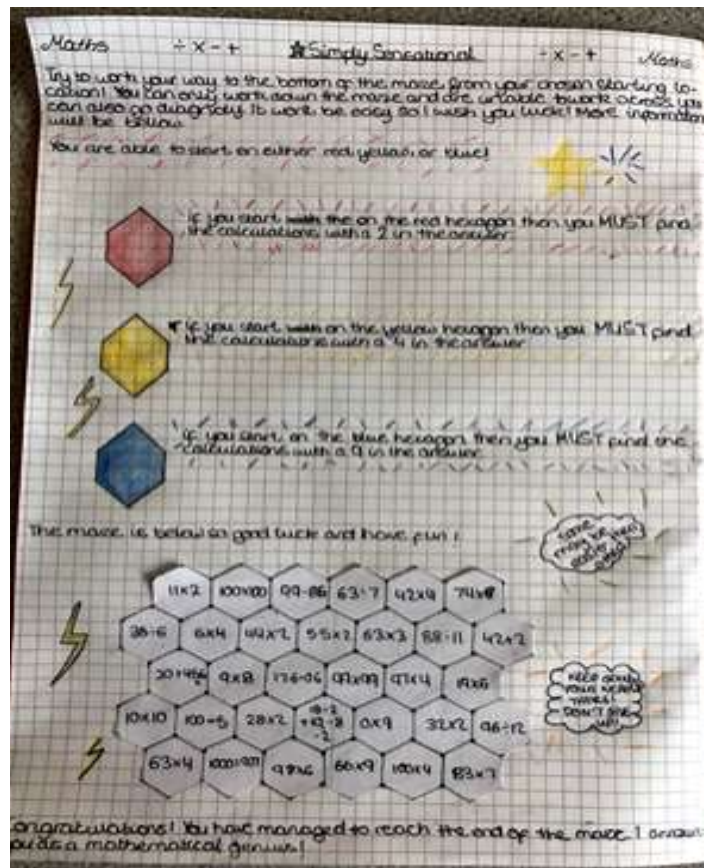 Maths ÷ x - + Simply Sensational ÷ x - + Maths
Try to work your way to the bottom of the maze from your chosen starting lo-
cation! You can only work down the maze and are unable to work across you
can also go diagnolly. It wont be easy so I wish you luck! More information
will be below
You are able to start on either red, yellow, or blue!
If you start with the on the red hexagon then you MUST find
the calculations with a 2 in the answer
If you start with on the yellow hexagon then you MUST find
the calculations with a 4 in the answer
If you start on the blue hexagon then you MUST find the
calculations with a 9 in the answer
The maze is below so good luck and have fun!
some
may be
easier then
others!
11x2 100x100 99-86 63÷7 42x4 74x8
6x4 44x2 55x2 63x3 88÷11 42x2
9x8 97x4
KEEP GOING
YOUR NEARLY
THERE!
DON'T GIVE
UP!
10x10 28x2 0x9 32x2 96÷12
63x4 98x6 66x9 100x4 83x7
ongratulations! You have managed to reach the end of the maze I
a mathematical genius!